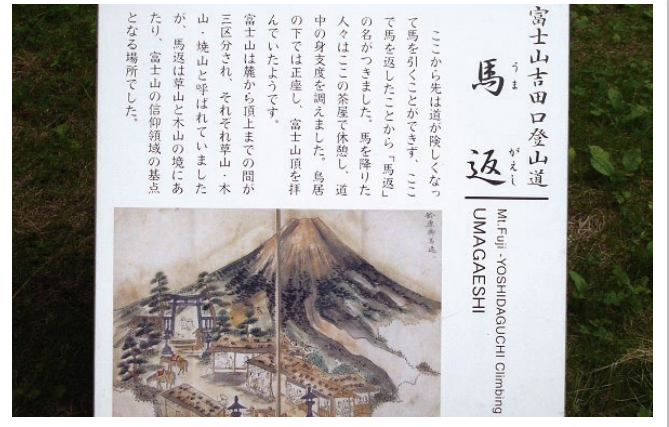 富士山吉田口登山道
馬返
うま
がえし
Mt.Fuji -YOSHIDAGUCHI Climbing
UMAGAESHI
ここから先は道が険しくなっ
て馬を引くことができず、ここ
で馬を返したことから「馬返」
の名がつきました。馬を降りた
人々はここの茶屋で休憩し、道
中の身支度を調えました。鳥居
の下では正座し、富士山頂を拝
んでいたようです。
富士山は麓から頂上までの間が
三区分され、それぞれ草山・木
山・焼山と呼ばれていました
が、馬返は草山と木山の境にあ
たり、富士山の信仰領域の基点
となる場所でした。